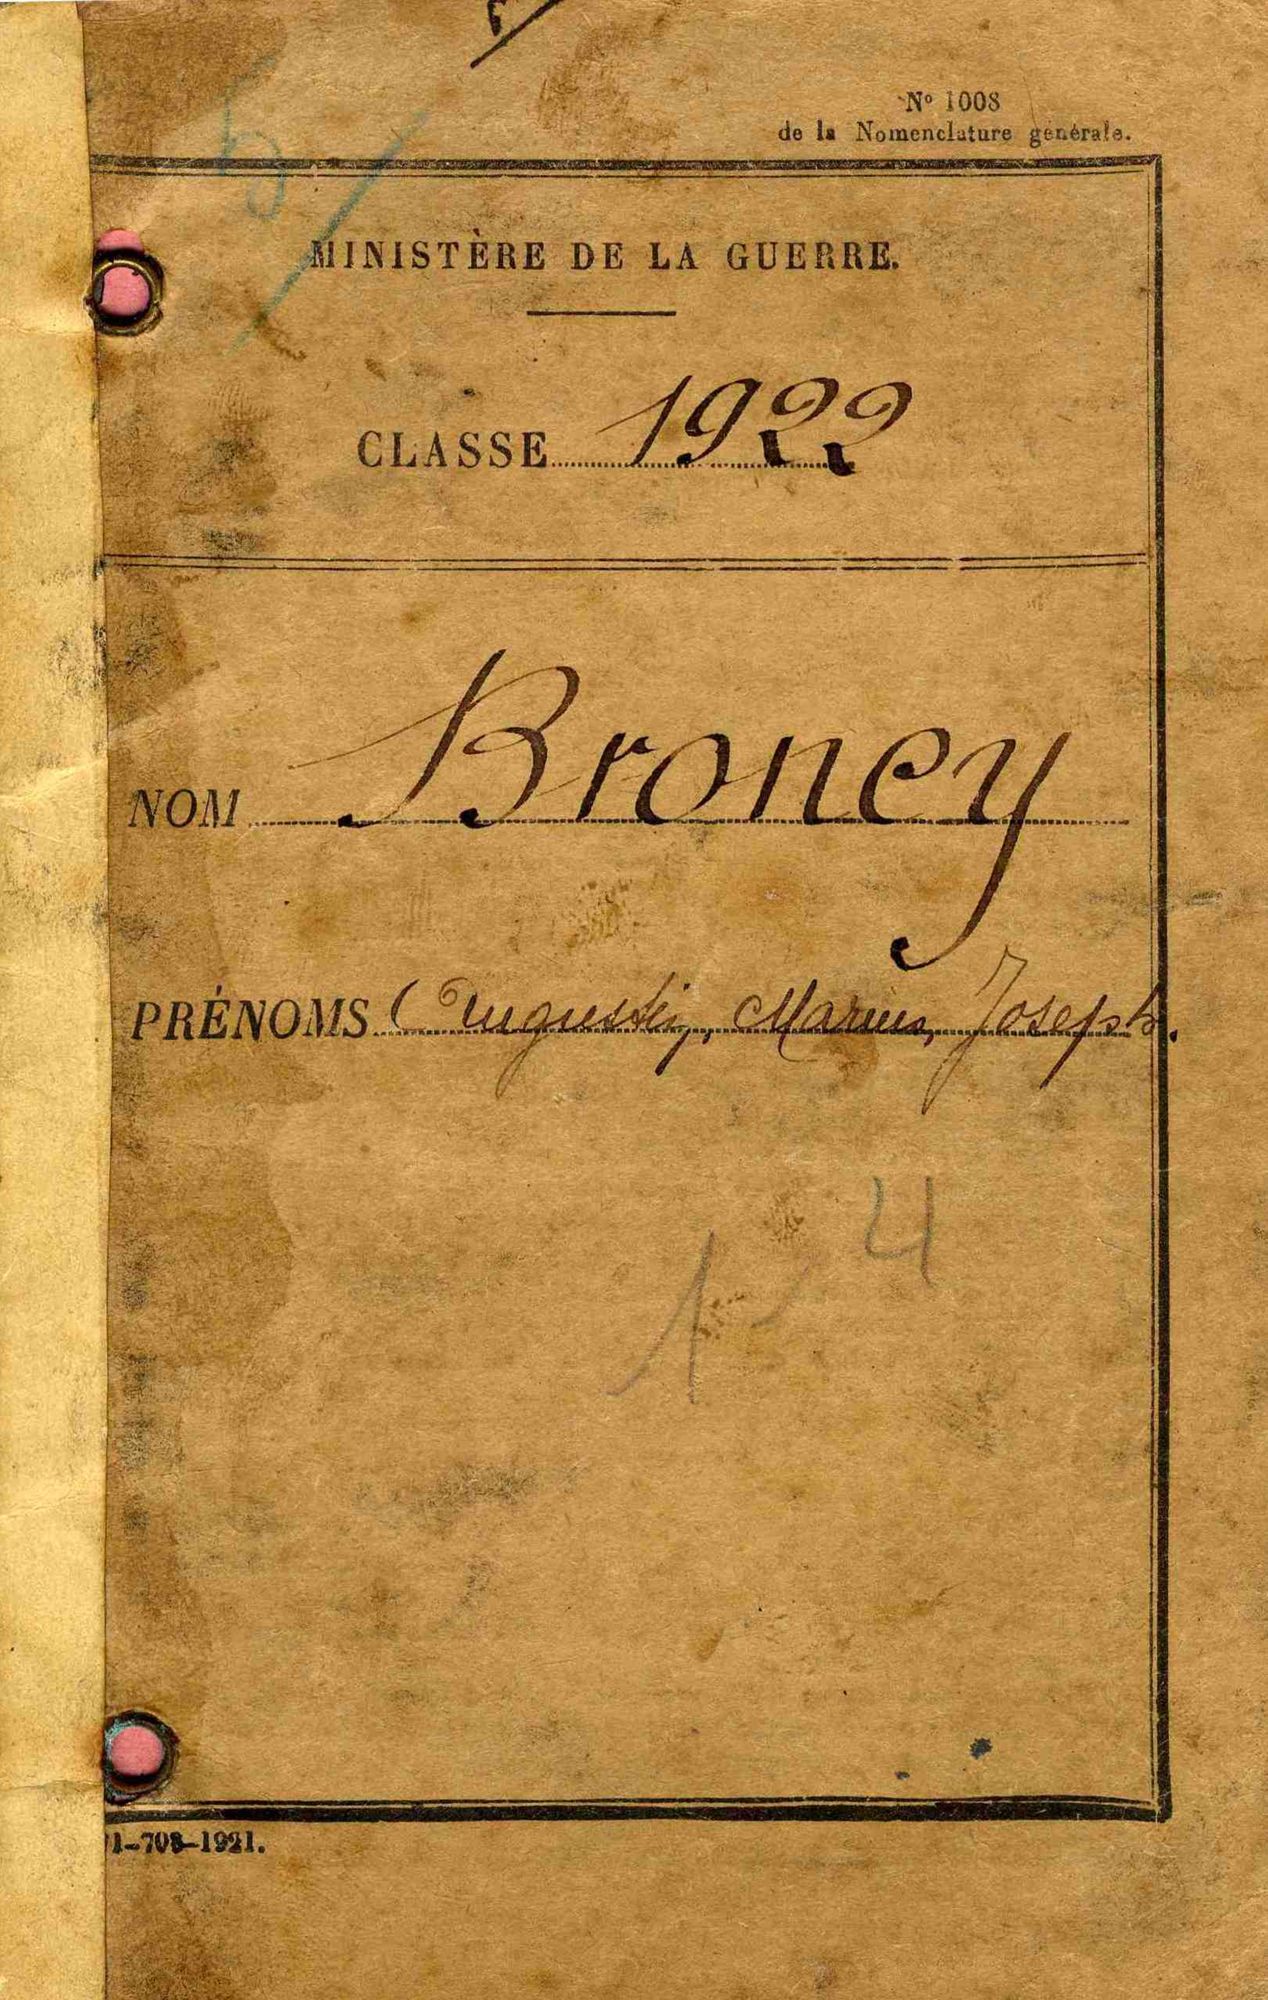 N° 1008
de la Nomenclature générale.
MINISTÈRE DE LA GUERRE.
CLASSE 1922
NOM Broney
PRÉNOMS Augustin, Marius, Joseph.
4
1
1-708-1921.